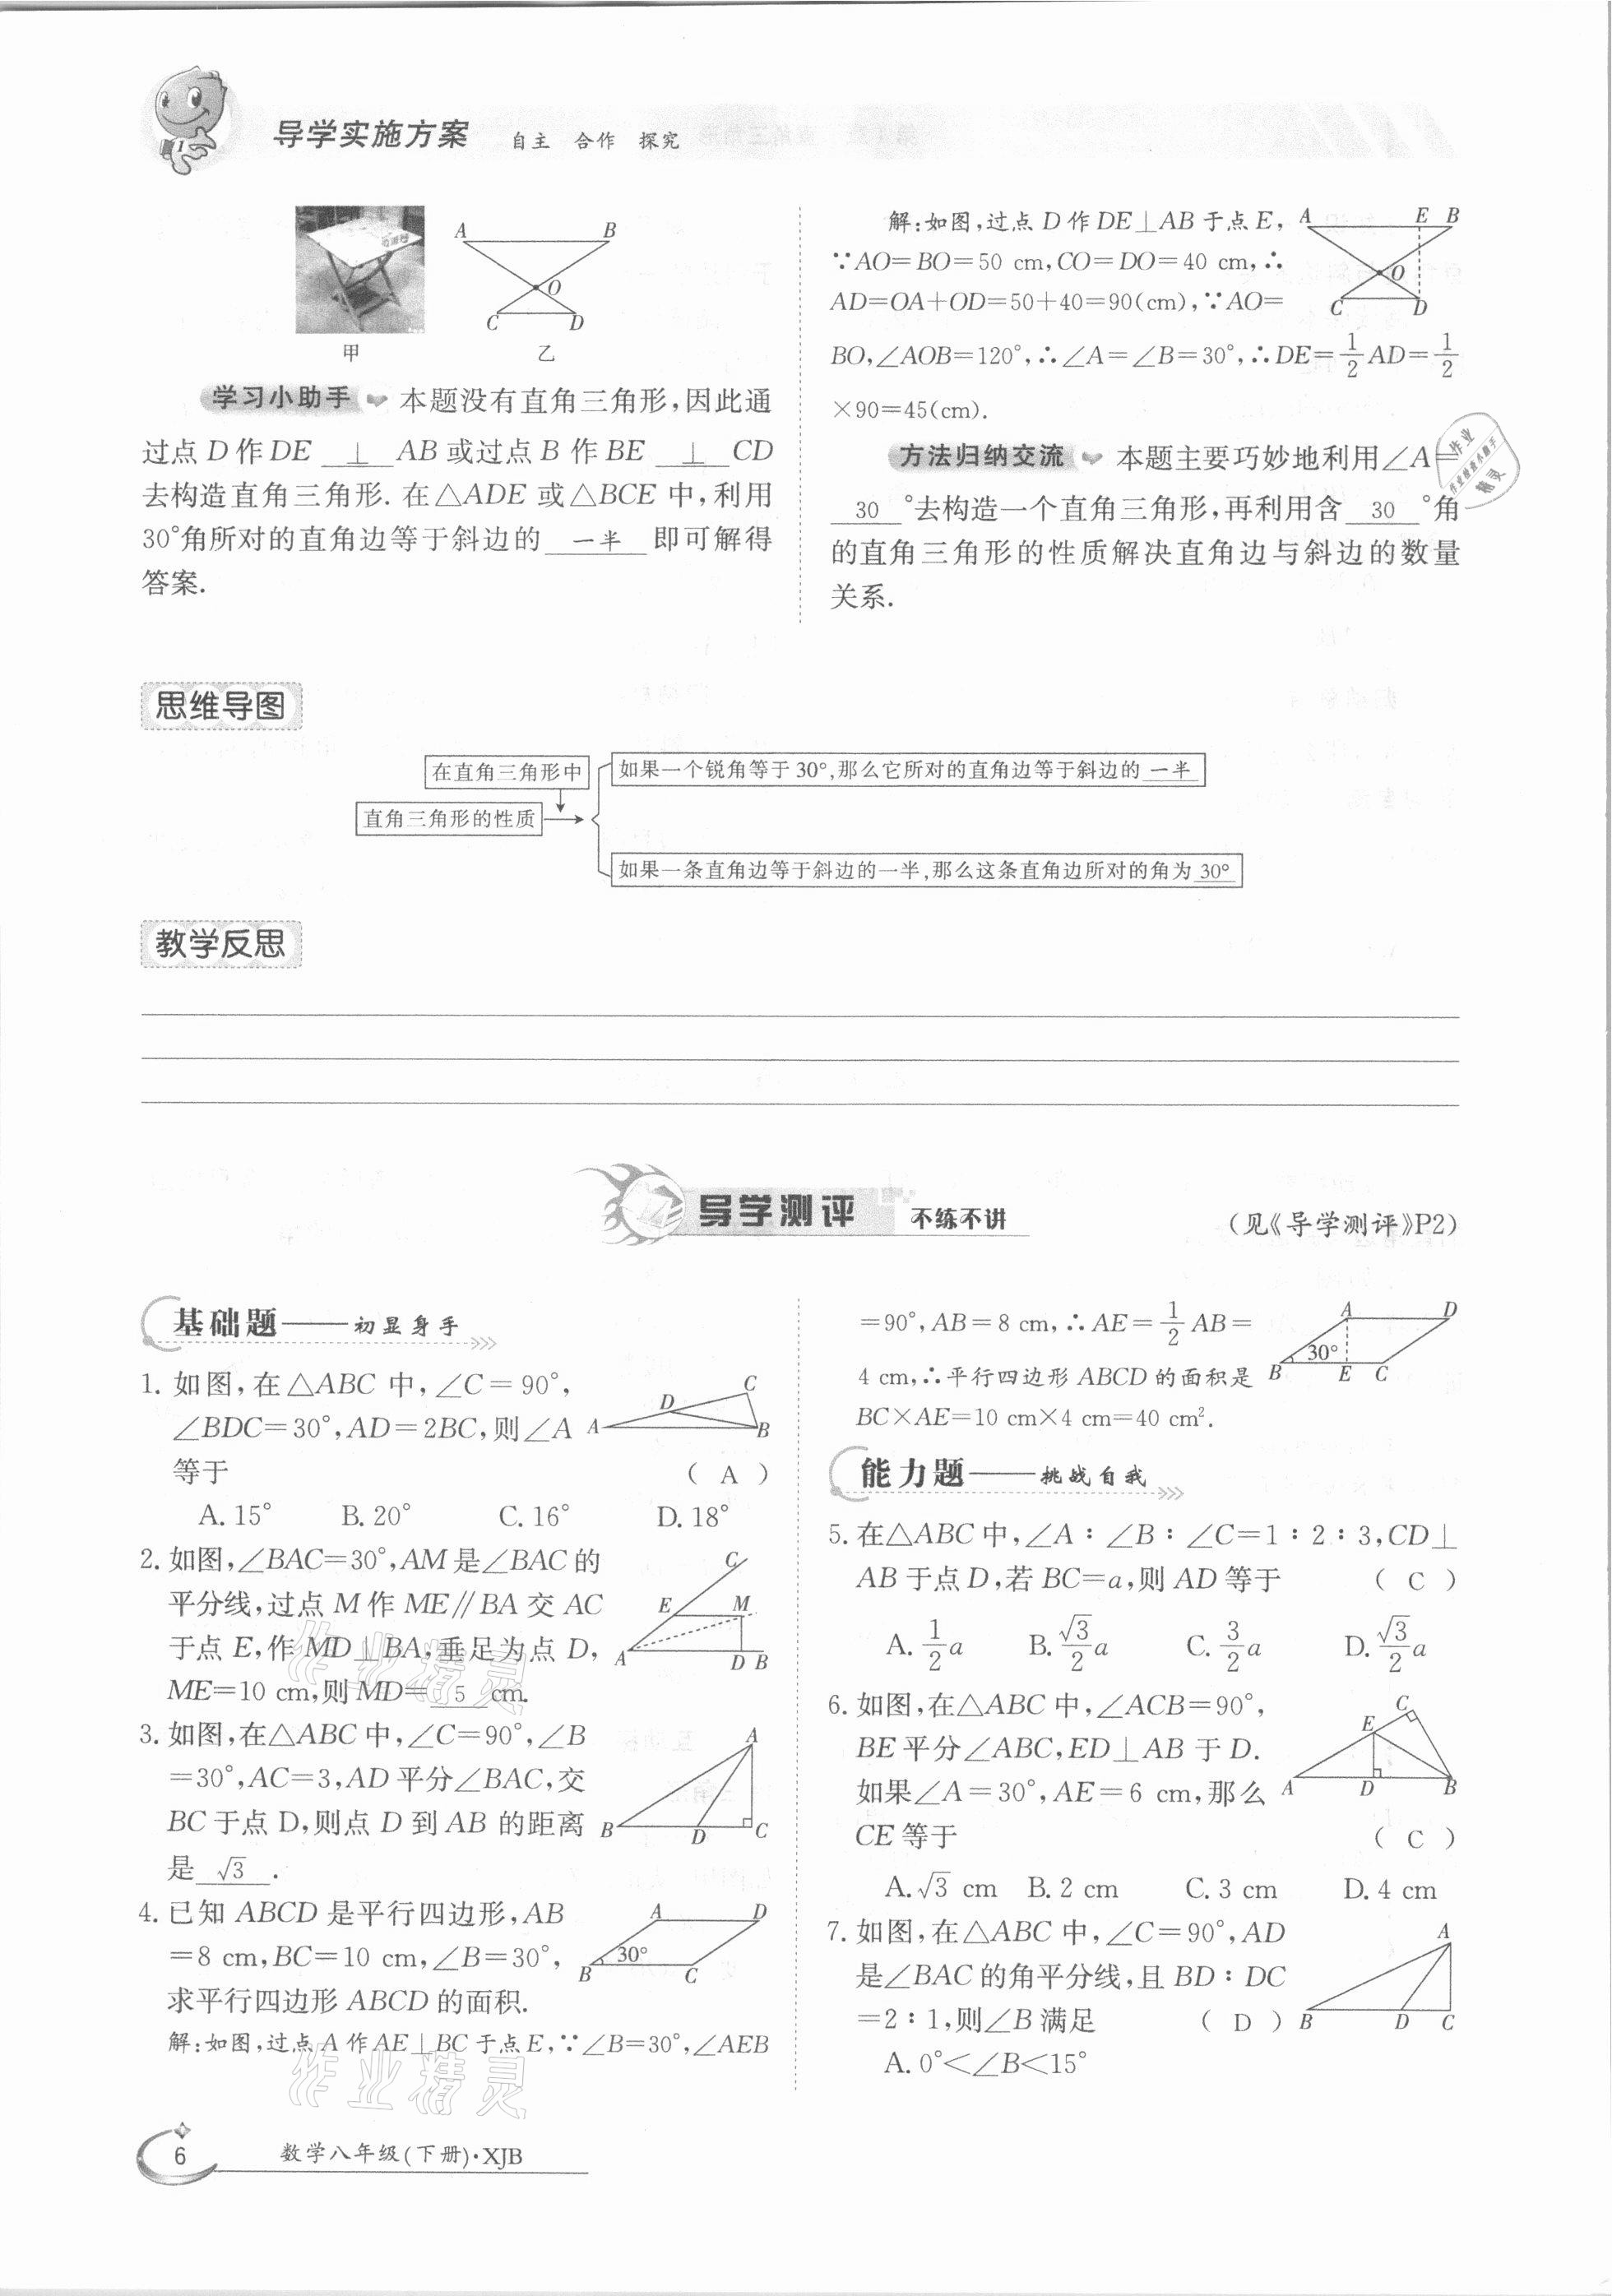 导学实施方案 自主 合作 探究
A B
O
C D
甲 乙
学习小助手 本题没有直角三角形,因此通
过点 D 作 DE ⊥ AB 或过点 B 作 BE ⊥ CD
去构造直角三角形. 在△ADE 或△BCE 中,利用
30°角所对的直角边等于斜边的 一半 即可解得
答案.
解:如图,过点 D 作 DE⊥AB 于点 E,
∵AO=BO=50 cm,CO=DO=40 cm,∴
AD=OA+OD=50+40=90(cm),∵AO=
BO,∠AOB=120°,∴∠A=∠B=30°,∴DE=1/2 AD=1/2
×90=45(cm).
A E B
O
C D
方法归纳交流 本题主要巧妙地利用∠A=
30 °去构造一个直角三角形,再利用含 30 °角
的直角三角形的性质解决直角边与斜边的数量
关系.
思维导图
在直角三角形中
直角三角形的性质
如果一个锐角等于 30°,那么它所对的直角边等于斜边的 一半
如果一条直角边等于斜边的一半,那么这条直角边所对的角为 30°
教学反思
导学测评 不练不讲 (见《导学测评》P2)
基础题——初显身手
1. 如图,在△ABC 中,∠C=90°,
∠BDC=30°,AD=2BC,则∠A
等于 ( A )
A. 15° B. 20° C. 16° D. 18°
D C
A B
2. 如图,∠BAC=30°,AM 是∠BAC 的
平分线,过点 M 作 ME∥BA 交 AC
于点 E,作 MD⊥BA,垂足为点 D,
ME=10 cm,则 MD= 5 cm.
C
E M
A D B
3. 如图,在△ABC 中,∠C=90°,∠B
=30°,AC=3,AD 平分∠BAC,交
BC 于点 D,则点 D 到 AB 的距离
是 √3 .
A
B D C
4. 已知 ABCD 是平行四边形,AB
=8 cm,BC=10 cm,∠B=30°,
求平行四边形 ABCD 的面积.
A D
30°
B C
解:如图,过点 A 作 AE⊥BC 于点 E,∵∠B=30°,∠AEB
=90°,AB=8 cm,∴AE=1/2 AB=
4 cm,∴平行四边形 ABCD 的面积是
BC×AE=10 cm×4 cm=40 cm².
A D
30°
B E C
能力题——挑战自我
5. 在△ABC 中,∠A∶∠B∶∠C=1∶2∶3,CD⊥
AB 于点 D,若 BC=a,则 AD 等于 ( C )
A. 1/2 a B. √3/2 a C. 3/2 a D. √3/2 a
6. 如图,在△ABC 中,∠ACB=90°,
BE 平分∠ABC,ED⊥AB 于 D.
如果∠A=30°,AE=6 cm,那么
CE 等于 ( C )
A. √3 cm B. 2 cm C. 3 cm D. 4 cm
C
E
A D B
7. 如图,在△ABC 中,∠C=90°,AD
是∠BAC 的角平分线,且 BD∶DC
=2∶1,则∠B 满足 ( D )
A. 0°<∠B<15°
A
B D C
6 数学八年级(下册)·XJB
作业精灵
作业精灵